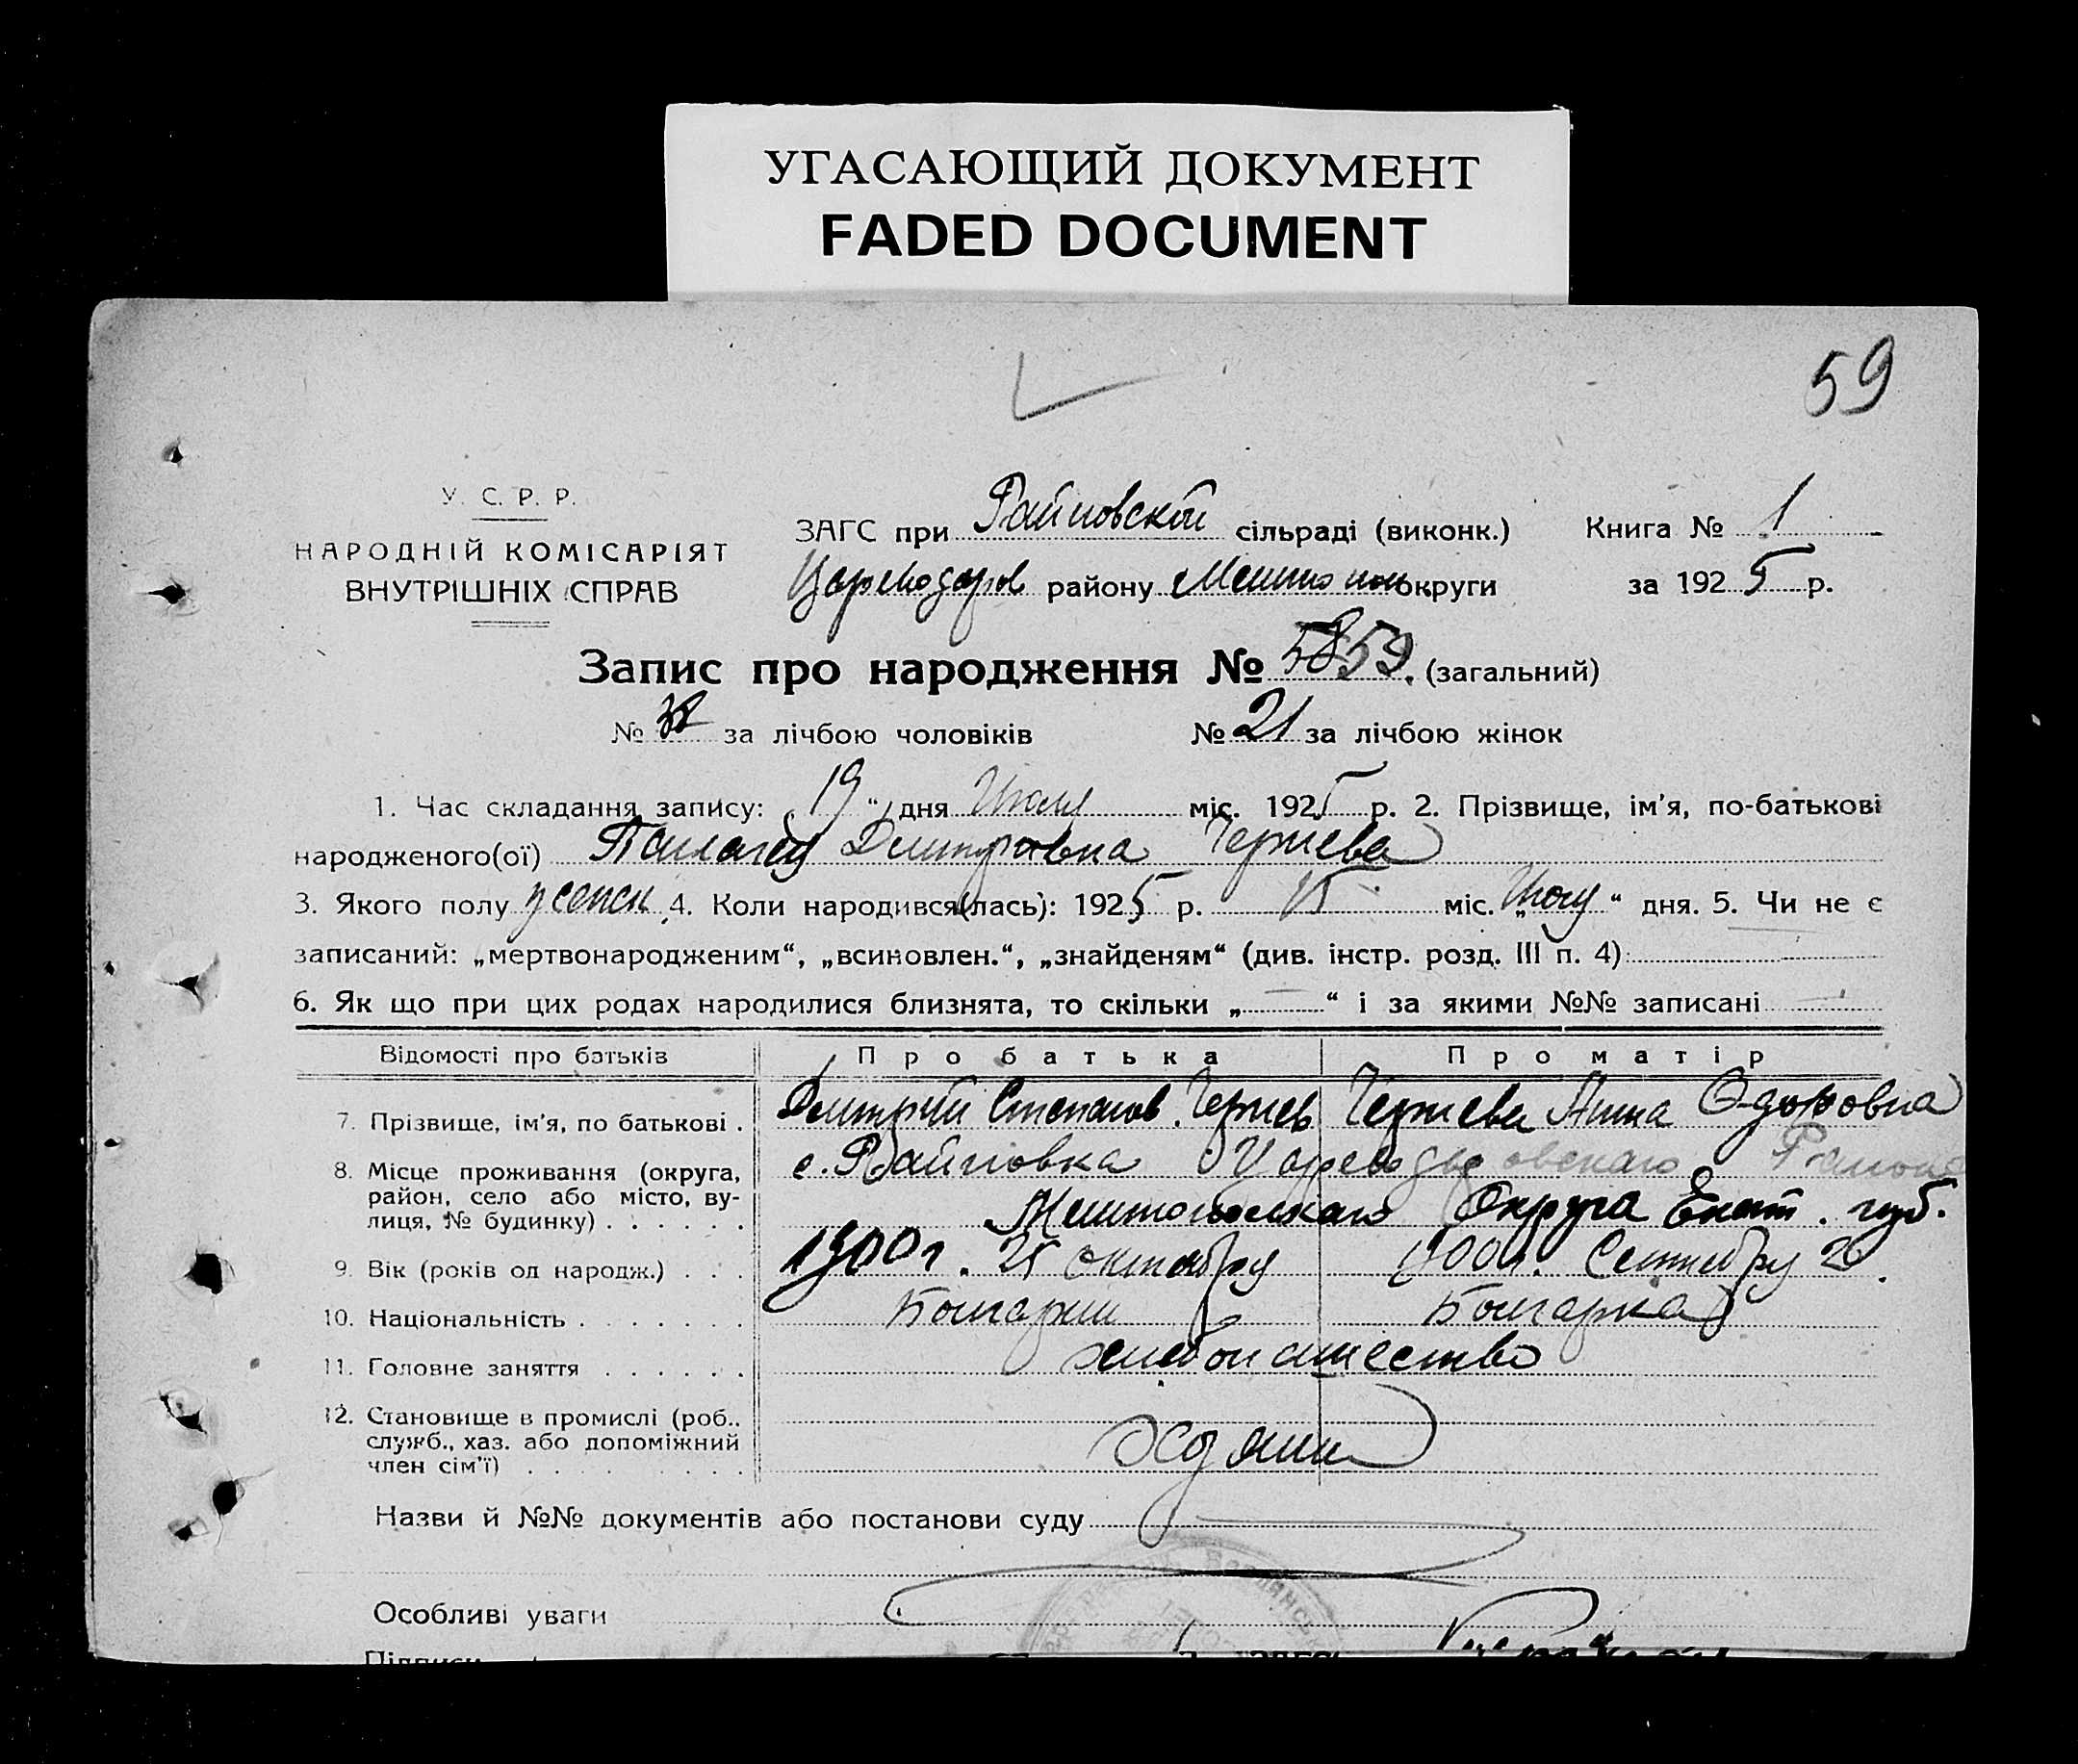 УГАСАЮЩИЙ ДОКУМЕНТ
FADED DOCUMENT
59
У. С. Р. Р.
НАРОДНІЙ КОМІСАРІЯТ
ВНУТРІШНІХ СПРАВ
ЗАГС при Райновской сільраді (виконк.) Книга № 1
району округи за 1925 р.
Запис про народження № 5859 (загальний)
№ за лічбою чоловіків № 21 за лічбою жінок
1. Час складання запису: 19 " дня Июля міс. 1925 р. 2. Прізвище, ім'я, по-батькові
народженого(ої) Дмитровна Чернева
3. Якого полу женск 4. Коли народився(лась): 1925 р. 15 міс. „Июля“ дня. 5. Чи не є
записаний: „мертвонародженим“, „всиновлен.“, „знайденям“ (див. інстр. розд. III п. 4)
6. Як що при цих родах народилися близнята, то скільки „ — “ і за якими №№ записані —
Відомості про батьків Про батька Про матір
7. Прізвище, ім'я, по батькові . Дмитрий Степанов. Чернев Чернева Анна Ѳдоровна
8. Місце проживання (округа, район, село або місто, ву-лиця, № будинку) . . . . . . с. Райновка Района
Округа Екат. губ.
9. Вік (років од народж.) . . . 1900 г. октября 1900 г. Сентября
10. Національність . . . . . . . Болгарин Болгарка
11. Головне заняття . . . . . . хлебопашество
12. Становище в промислі (роб., служб., хаз. або допоміжний член сім'ї) . . . . . . . . . Хозяин
Назви й №№ документів або постанови суду
Особливі уваги